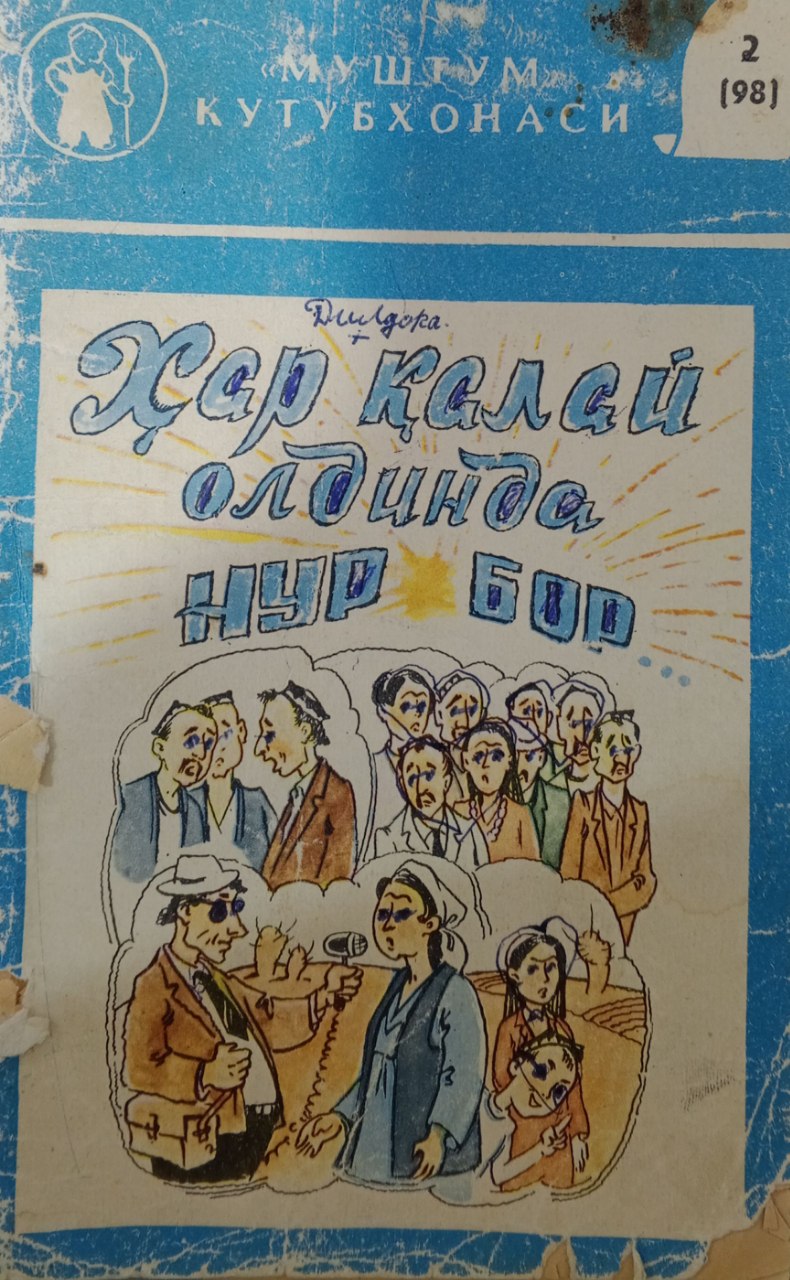 «МУШТУМ»
КУТУБХОНАСИ
2
(98)
Дилдора.
Ҳар қалай
олдинда
НУР БОР...